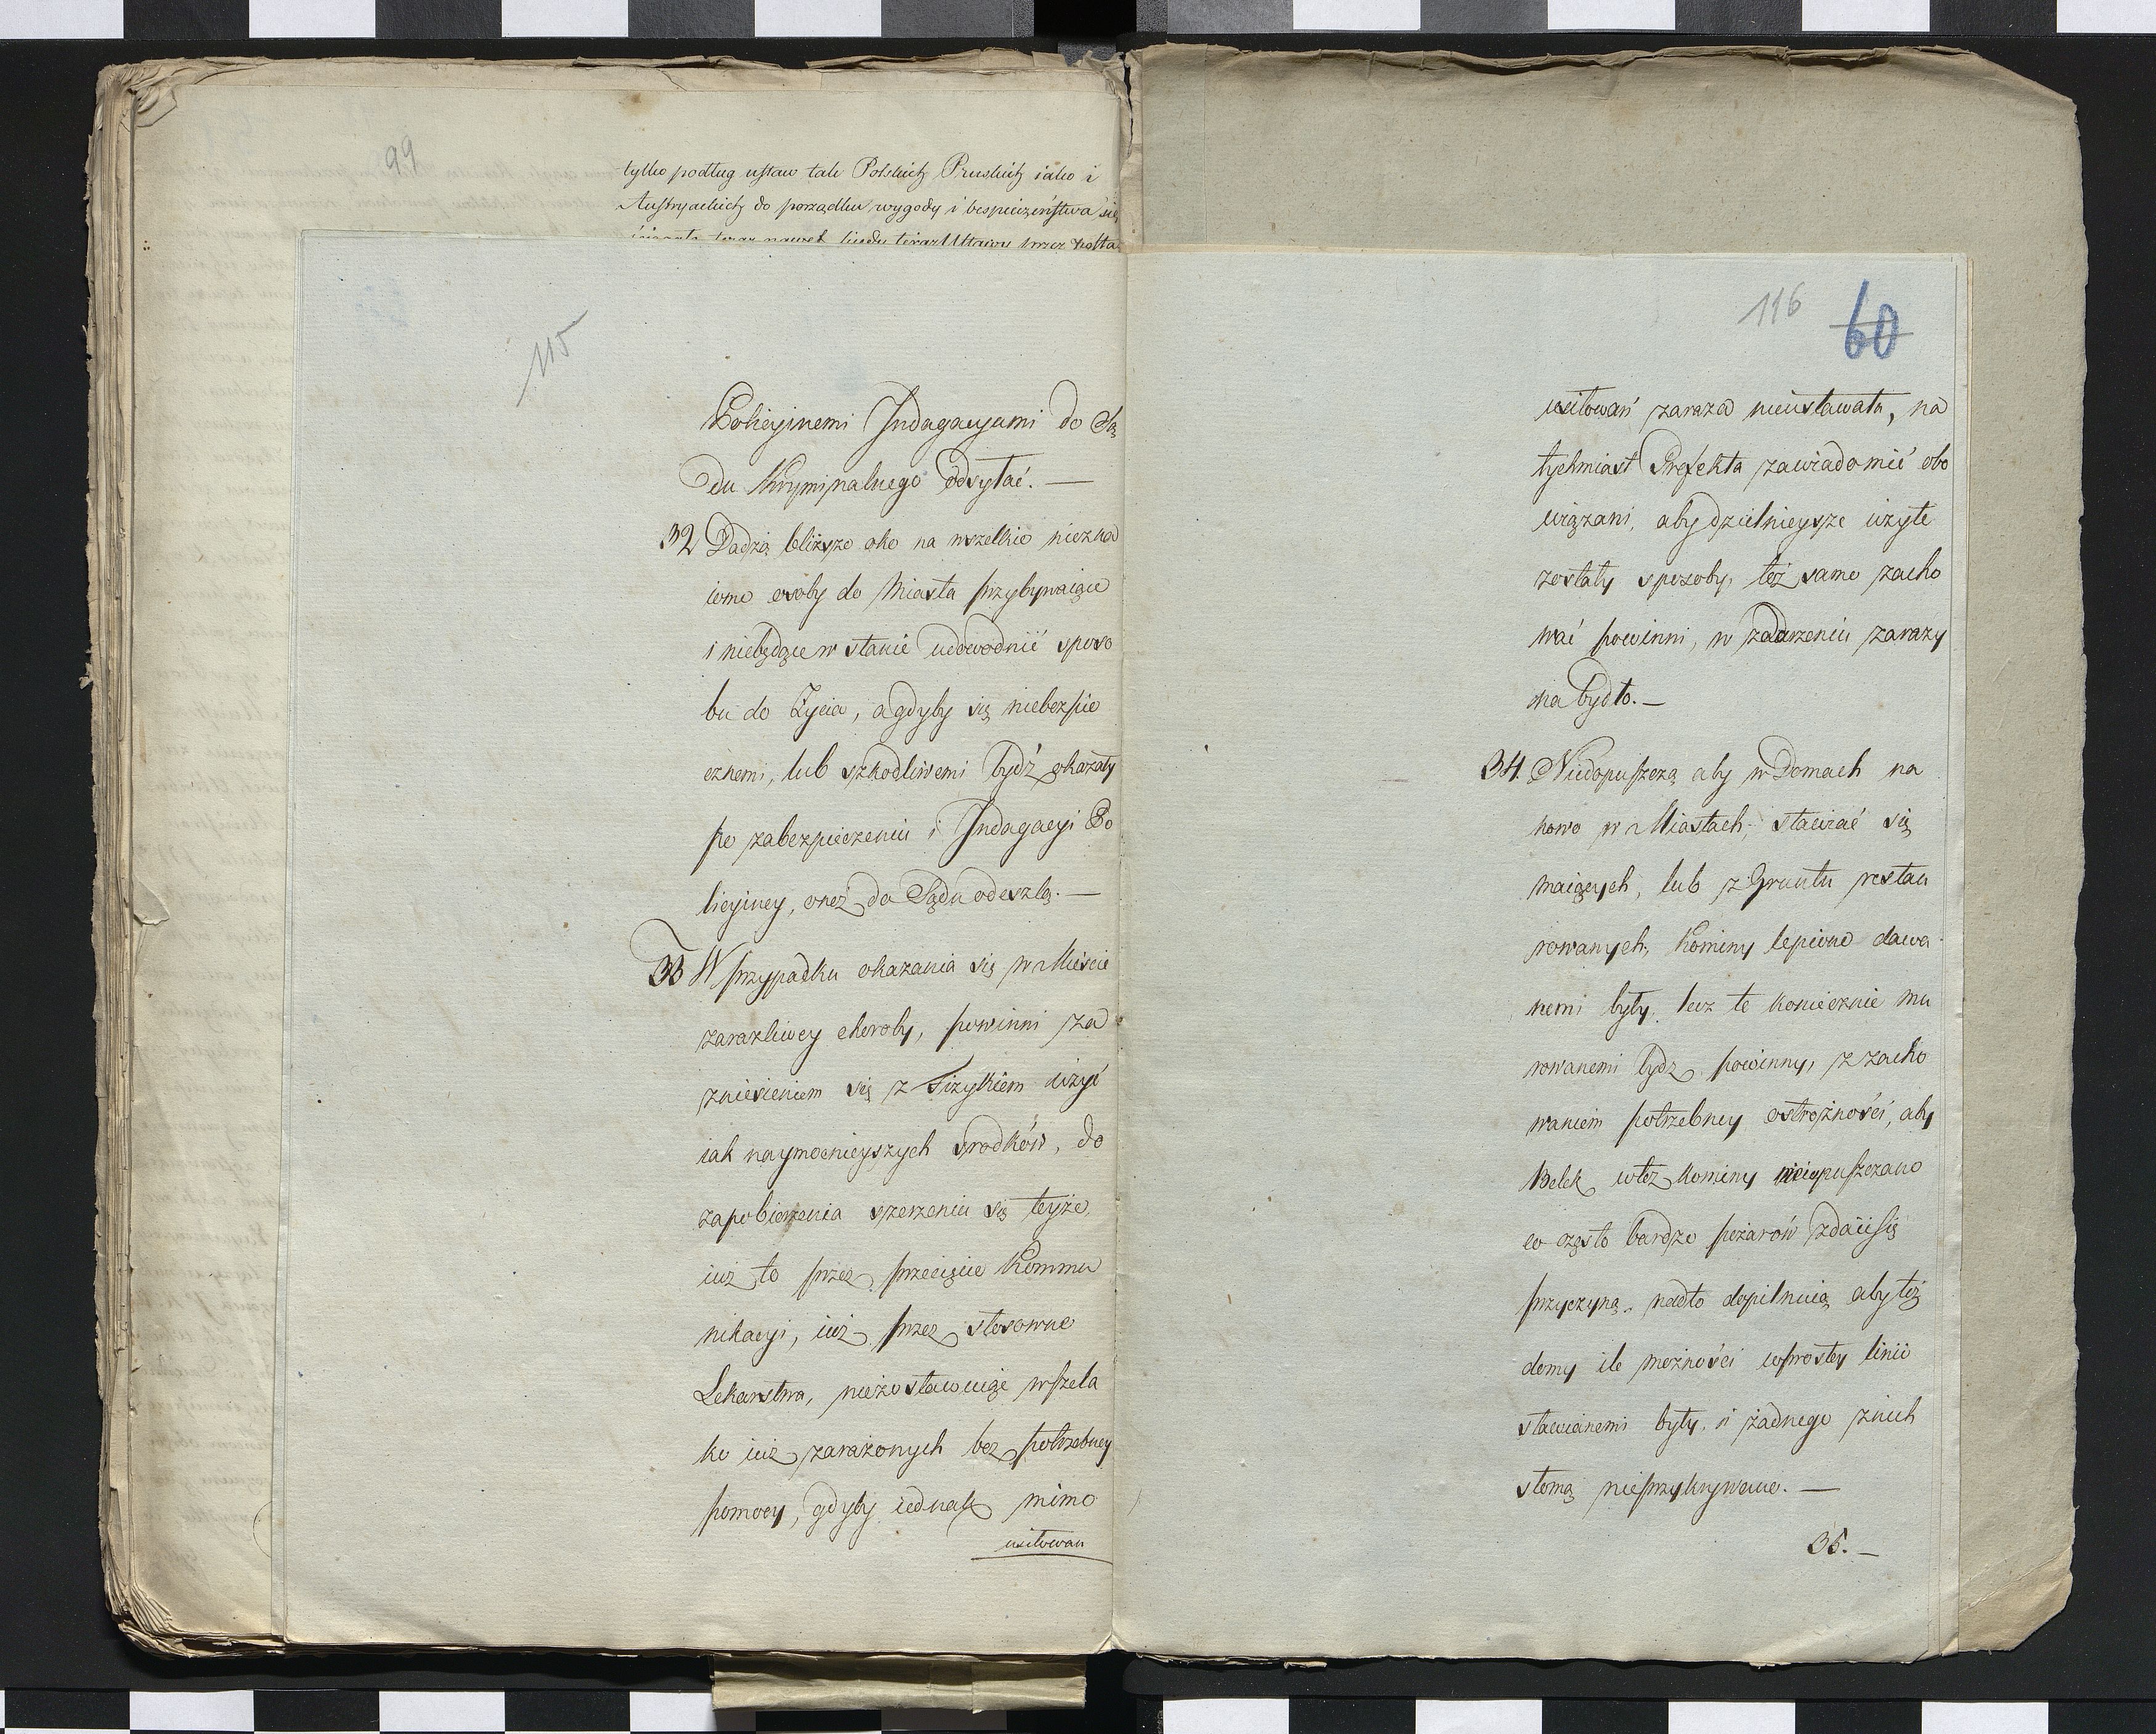 99
tylko podług ustaw tak Polskich Pruskich iako i
Austryackich do porządku wygody i bespieczeństwa się
115
Policyinemi Indagacyami do Są
du Kryminalnego odsyłać. —
32 Dadzą bliższe oko na wszelkie niezna
iome osoby do Miasta przybywaiące
i niebędące w stanie udowodnić sposo
bu do Życia, a gdyby się niebezpie
cznemi, lub szkodliwemi bydź okazały
po zabezpieczeniu i Indagacyi Po
licyiney, oneż do Sądu odeszlą. —
33 W przypadku okazania się w Mieście
zaraźliwey choroby, powinni za
zniesieniem się z Fizykiem użyć
iak naymocnieyszych srodków, do
zapobieżenia szerzeniu się teyże,
iuż to przez przecięcie Kommu
nikacyi, iuż przez stosowne
Lekarstwa, niezostawuiąc wszela
ko iuż zarażonych bez potrzebney
pomocy, gdyby iednak mimo
usitowan
116
60
usitowań zaraza nieustawała, na
tychmiast Prefekta zawiadomić obo
wiązani, aby dzielnieysze użyte
zostały sposoby, też same zacho
wać powinni, w zdarzeniu zarazy
na bydło. —
34. Niedopuszczą aby w Domach na
nowo w Miastach, stawiać się
maiących, lub z Gruntu restau
rowanych, Kominy lepione dawa
nemi były, lecz te koniecznie mu
rowanemi bydz powinny, z zacho
waniem potrzebney ostrożności, aby
Belek wtez kominy niewpuszczano
co często bardzo pożarów zdaie się
przyczyną. nadto dopilnuią aby też
domy ile możności wprostey linii
stawianemi były, i żadnego znich
słomą nieprzykrywano. —
35. —